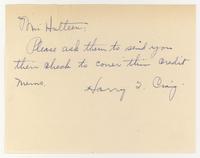 Mr. Halteen:
Please ask them to send you
their check to cover this credit
memo.
Harry T. Craig.